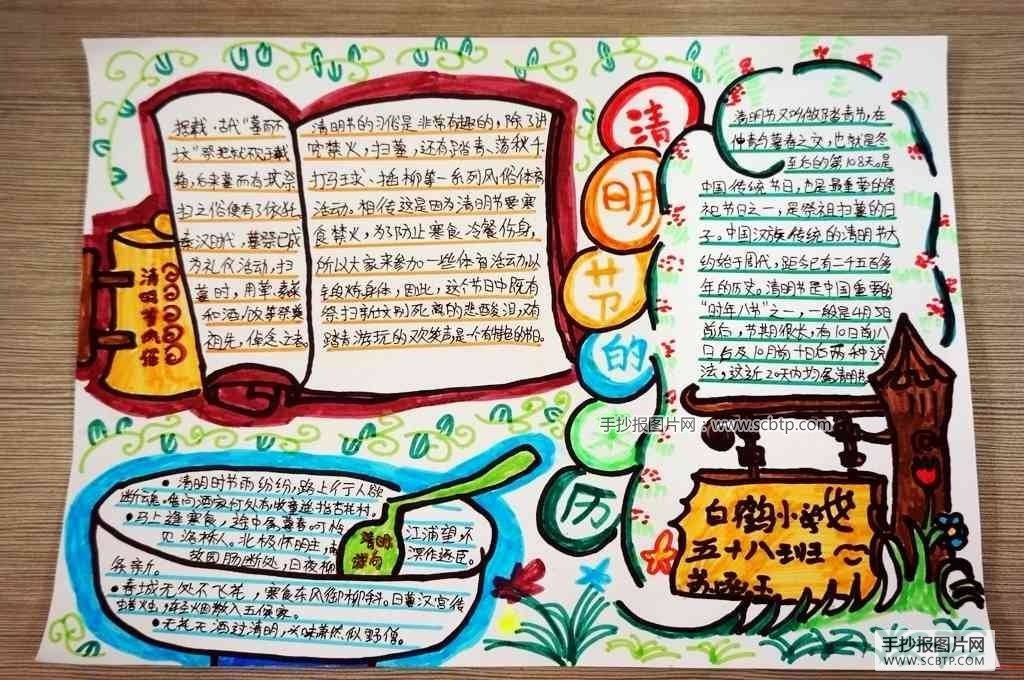 清
明
节
的
历
据载，古代"墓而不
坟"祭祀就不记载
籍，后来墓而有坟，祭
扫之俗便有了依托
秦汉时代，墓祭已成
为礼仪活动，扫
墓时，用
和酒/饭
祖先，
清明节的习俗是非常有趣的，除了讲
究禁火，扫墓，还有踏青、荡秋千
打马球、插柳等一系列风俗体育
活动。相传这是因为清明节要寒
食禁火，为了防止寒食冷餐伤身，
所以大家来参加一些体育活动以
锻炼身体，因此，这个节日中既有
祭扫新坟别死离的悲酸泪，又有
踏青游玩的欢笑声是个有特色的节日。
清明节又叫做踏青节，在
仲春与暮春之交，也就是冬
至后的第108天。是
中国传统节日，也是最重要的祭
祀节日之一，是祭祖扫墓的日
子。中国汉族传统的清明节大
约始于周代，距今已有二千五百多
年的历史。清明节是中国重要的
"时年八节"之一，一般是4月5日
前后，节期很长，有10日前八
日后及10日前十日后两种说
法，这近20天内均属清明节。
手抄报图片网：www.scbtp.com
• 清明时节雨纷纷，路上行人欲
断魂。借问酒家何处有牧童遥指杏花村。
• 马上逢寒食，途中属暮春。可怜江浦望，不
见洛桥人。北极怀明主，南溟作逐臣。
故园肠断处，日夜柳
条新。
• 春城无处不飞花，寒食东风御柳斜。日暮汉宫传
蜡烛，轻烟散入五侯家。
• 无花无酒过清明，兴味萧然似野僧。
清明
诗句
白鹤小学
五十八班
手抄报图片网
WWW.SCBTP.COM